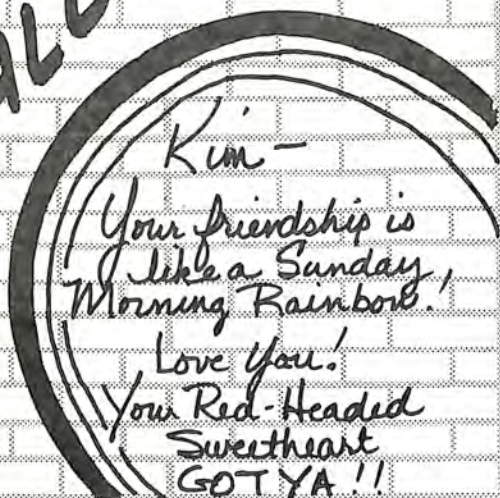 ALL
Kim -
Your friendship is
like a Sunday
Morning Rainbow!
Love You!
Your Red-Headed
Sweetheart
GOT YA!!